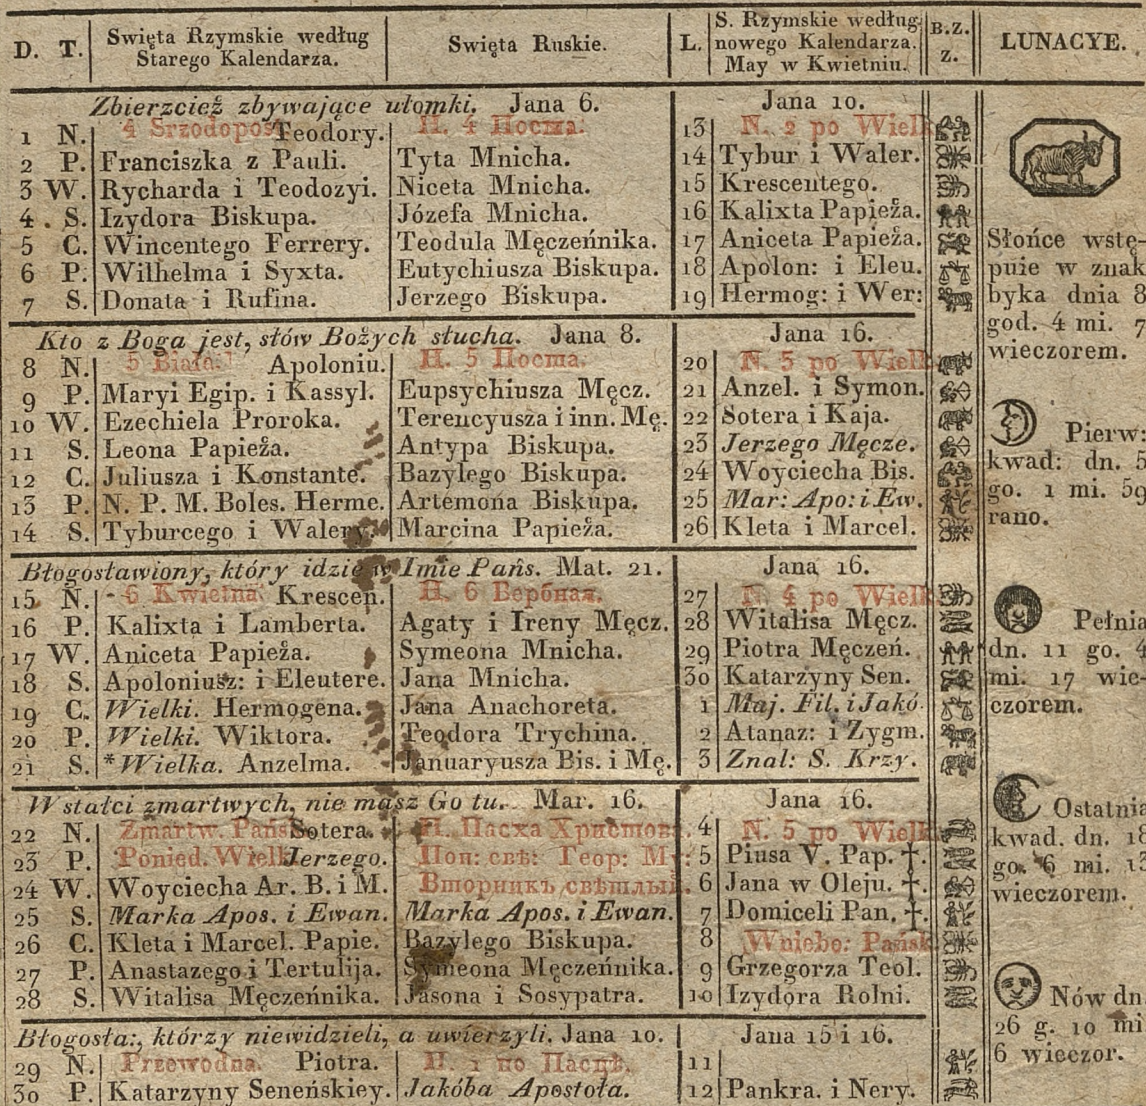 D. T. Swięta Rzymskie według Starego Kalendarza. Swięta Ruskie. L. S. Rzymskie według nowego Kalendarza. May w Kwietniu. B.Z. Z. LUNACYE.
Zbierzcież zbywające ułomki. Jana 6. Jana 10.
1 N. 4 Srzodopost Teodory. Н. 4 Посша. 13 N. 2 po Wielk
2 P. Franciszka z Pauli. Tyta Mnicha. 14 Tybur i Waler.
3 W. Rycharda i Teodozyi. Niceta Mnicha. 15 Krescentego.
4 . S. Izydora Biskupa. Józefa Mnicha. 16 Kalixta Papieża.
5 C. Wincentego Ferrery. Teodula Męczeńnika. 17 Aniceta Papieża.
6 P. Wilhelma i Syxta. Eutychiusza Biskupa. 18 Apolon: i Eleu.
7 S. Donata i Rufina. Jerzego Biskupa. 19 Hermog: i Wer:
Kto z Boga jest, słów Bożych słucha. Jana 8. Jana 16.
8 N. 5 Biała. Apoloniu. Н. 5 Посша. 20 N. 3 po Wielk
9 P. Maryi Egip. i Kassyl. Eupsychiusza Męcz. 21 Anzel. i Symon.
10 W. Ezechiela Proroka. Terencyusza i inn. Mę. 22 Sotera i Kaja.
11 S. Leona Papieża. Antypa Biskupa. 23 Jerzego Męcze.
12 C. Juliusza i Konstante. Bazylego Biskupa. 24 Woyciecha Bis.
13 P. N. P. M. Boles. Herme. Artemona Biskupa. 25 Mar: Apo: i Ew.
14 S. Tyburcego i Walery. Marcina Papieża. 26 Kleta i Marcel.
Błogosławiony, który idzie w Imie Pańs. Mat. 21. Jana 16.
15 N. 6 Kwietna Krescen. Н. 6 Вербная. 27 N. 4 po Wielk
16 P. Kalixta i Lamberta. Agaty i Ireny Męcz. 28 Witalisa Męcz.
17 W. Aniceta Papieża. Symeona Mnicha. 29 Piotra Męczeń.
18 S. Apoloniusz: i Eleutere. Jana Mnicha. 30 Katarzyny Sen.
19 C. Wielki. Hermogena. Jana Anachoreta. 1 Maj. Fil. i Jakó
20 P. Wielki. Wiktora. Teodora Trychina. 2 Atanaz: i Zygm.
21 S. *Wielka. Anzelma. Januaryusza Bis. i Mę. 3 Znal: S. Krzy.
Wstałci zmartwych, nie masz Go tu. Mar. 16. Jana 16.
22 N. Zmartw. Pańs Sotera. Н. Пасха Хрисшова. 4 N. 5 po Wielk
23 P. Ponied. Wielk Jerzego. Пон: свѣ: Геор: Му: 5 Piusa V. Pap. †.
24 W. Woyciecha Ar. B. i M. Вторникъ свѣшлый. 6 Jana w Oleju. †.
25 S. Marka Apos. i Ewan. Marka Apos. i Ewan. 7 Domiceli Pan. †.
26 C. Kleta i Marcel. Papie. Bazylego Biskupa. 8 Wniebo: Pańsk
27 P. Anastazego i Tertulija. Symeona Męczeńnika. 9 Grzegorza Teol.
28 S. Witalisa Męczeńnika. Jasona i Sosypatra. 10 Izydora Rolni.
Błogosła:, którzy niewidzieli, a uwierzyli. Jana 10. Jana 15 i 16.
29 N. Przewodna. Piotra. Н. 1 по Пасцѣ. 11
30 P. Katarzyny Seneńskiey. Jakóba Apostoła. 12 Pankra. i Nery.
Słońce wstę-
puie w znak
byka dnia 8
god. 4 mi. 7
wieczorem.
Pierw:
kwad: dn. 5
go. 1 mi. 59
rano.
Pełnia
dn. 11 go. 4
mi. 17 wie-
czorem.
Ostatnia
kwad. dn. 18
go. 6 mi. 13
wieczorem.
Nów dn
26 g. 10 mi
6 wieczor.